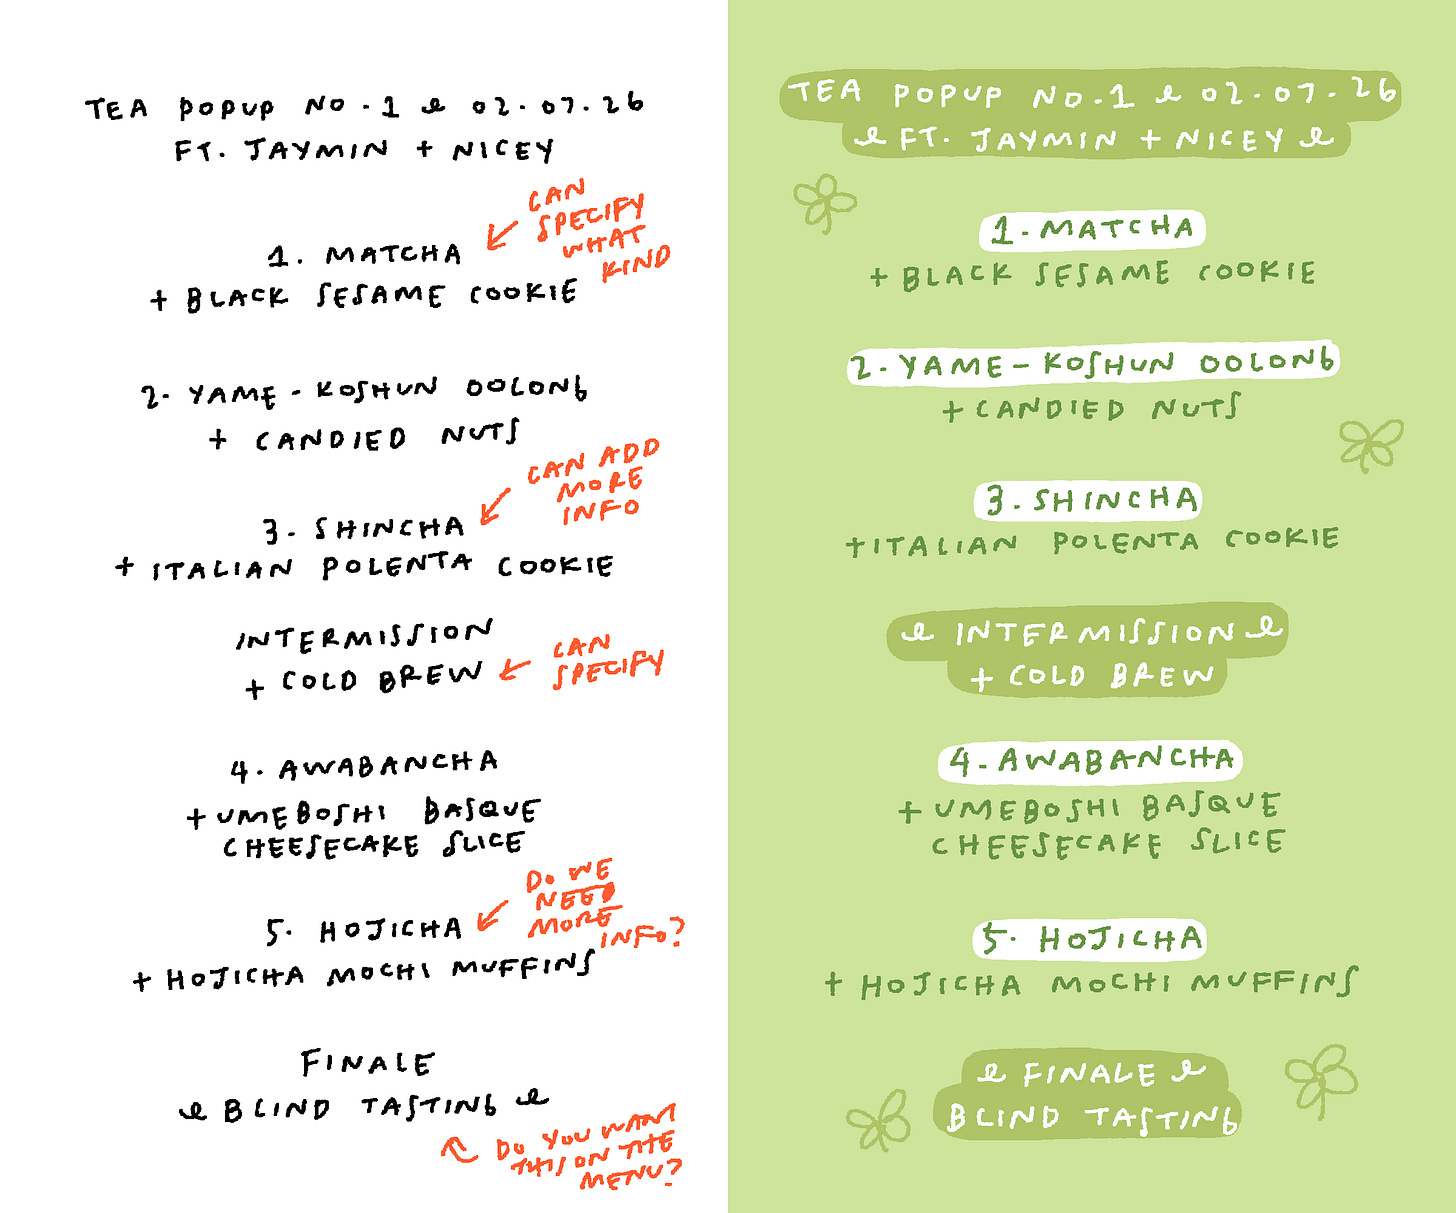 TEA POPUP NO.1 e 02.07.26
FT. JAYMIN + NICEY
CAN
SPECIFY
WHAT
KIND
1. MATCHA
+ BLACK SESAME COOKIE
2. YAME - KOSHUN OOLONG
+ CANDIED NUTS
CAN ADD
MORE
INFO
3. SHINCHA
+ ITALIAN POLENTA COOKIE
INTERMISSION
+ COLD BREW
CAN
SPECIFY
4. AWABANCHA
+ UMEBOSHI BASQUE
CHEESECAKE SLICE
DO WE
NEED
MORE
INFO?
5. HOJICHA
+ HOJICHA MOCHI MUFFINS
FINALE
e BLIND TASTING e
DO YOU WANT
THIS ON THE
MENU?
TEA POPUP NO.1 e 02.07.26
e FT. JAYMIN + NICEY e
1. MATCHA
+ BLACK SESAME COOKIE
2. YAME - KOSHUN OOLONG
+ CANDIED NUTS
3. SHINCHA
+ ITALIAN POLENTA COOKIE
e INTERMISSION e
+ COLD BREW
4. AWABANCHA
+ UMEBOSHI BASQUE
CHEESECAKE SLICE
5. HOJICHA
+ HOJICHA MOCHI MUFFINS
e FINALE e
BLIND TASTING